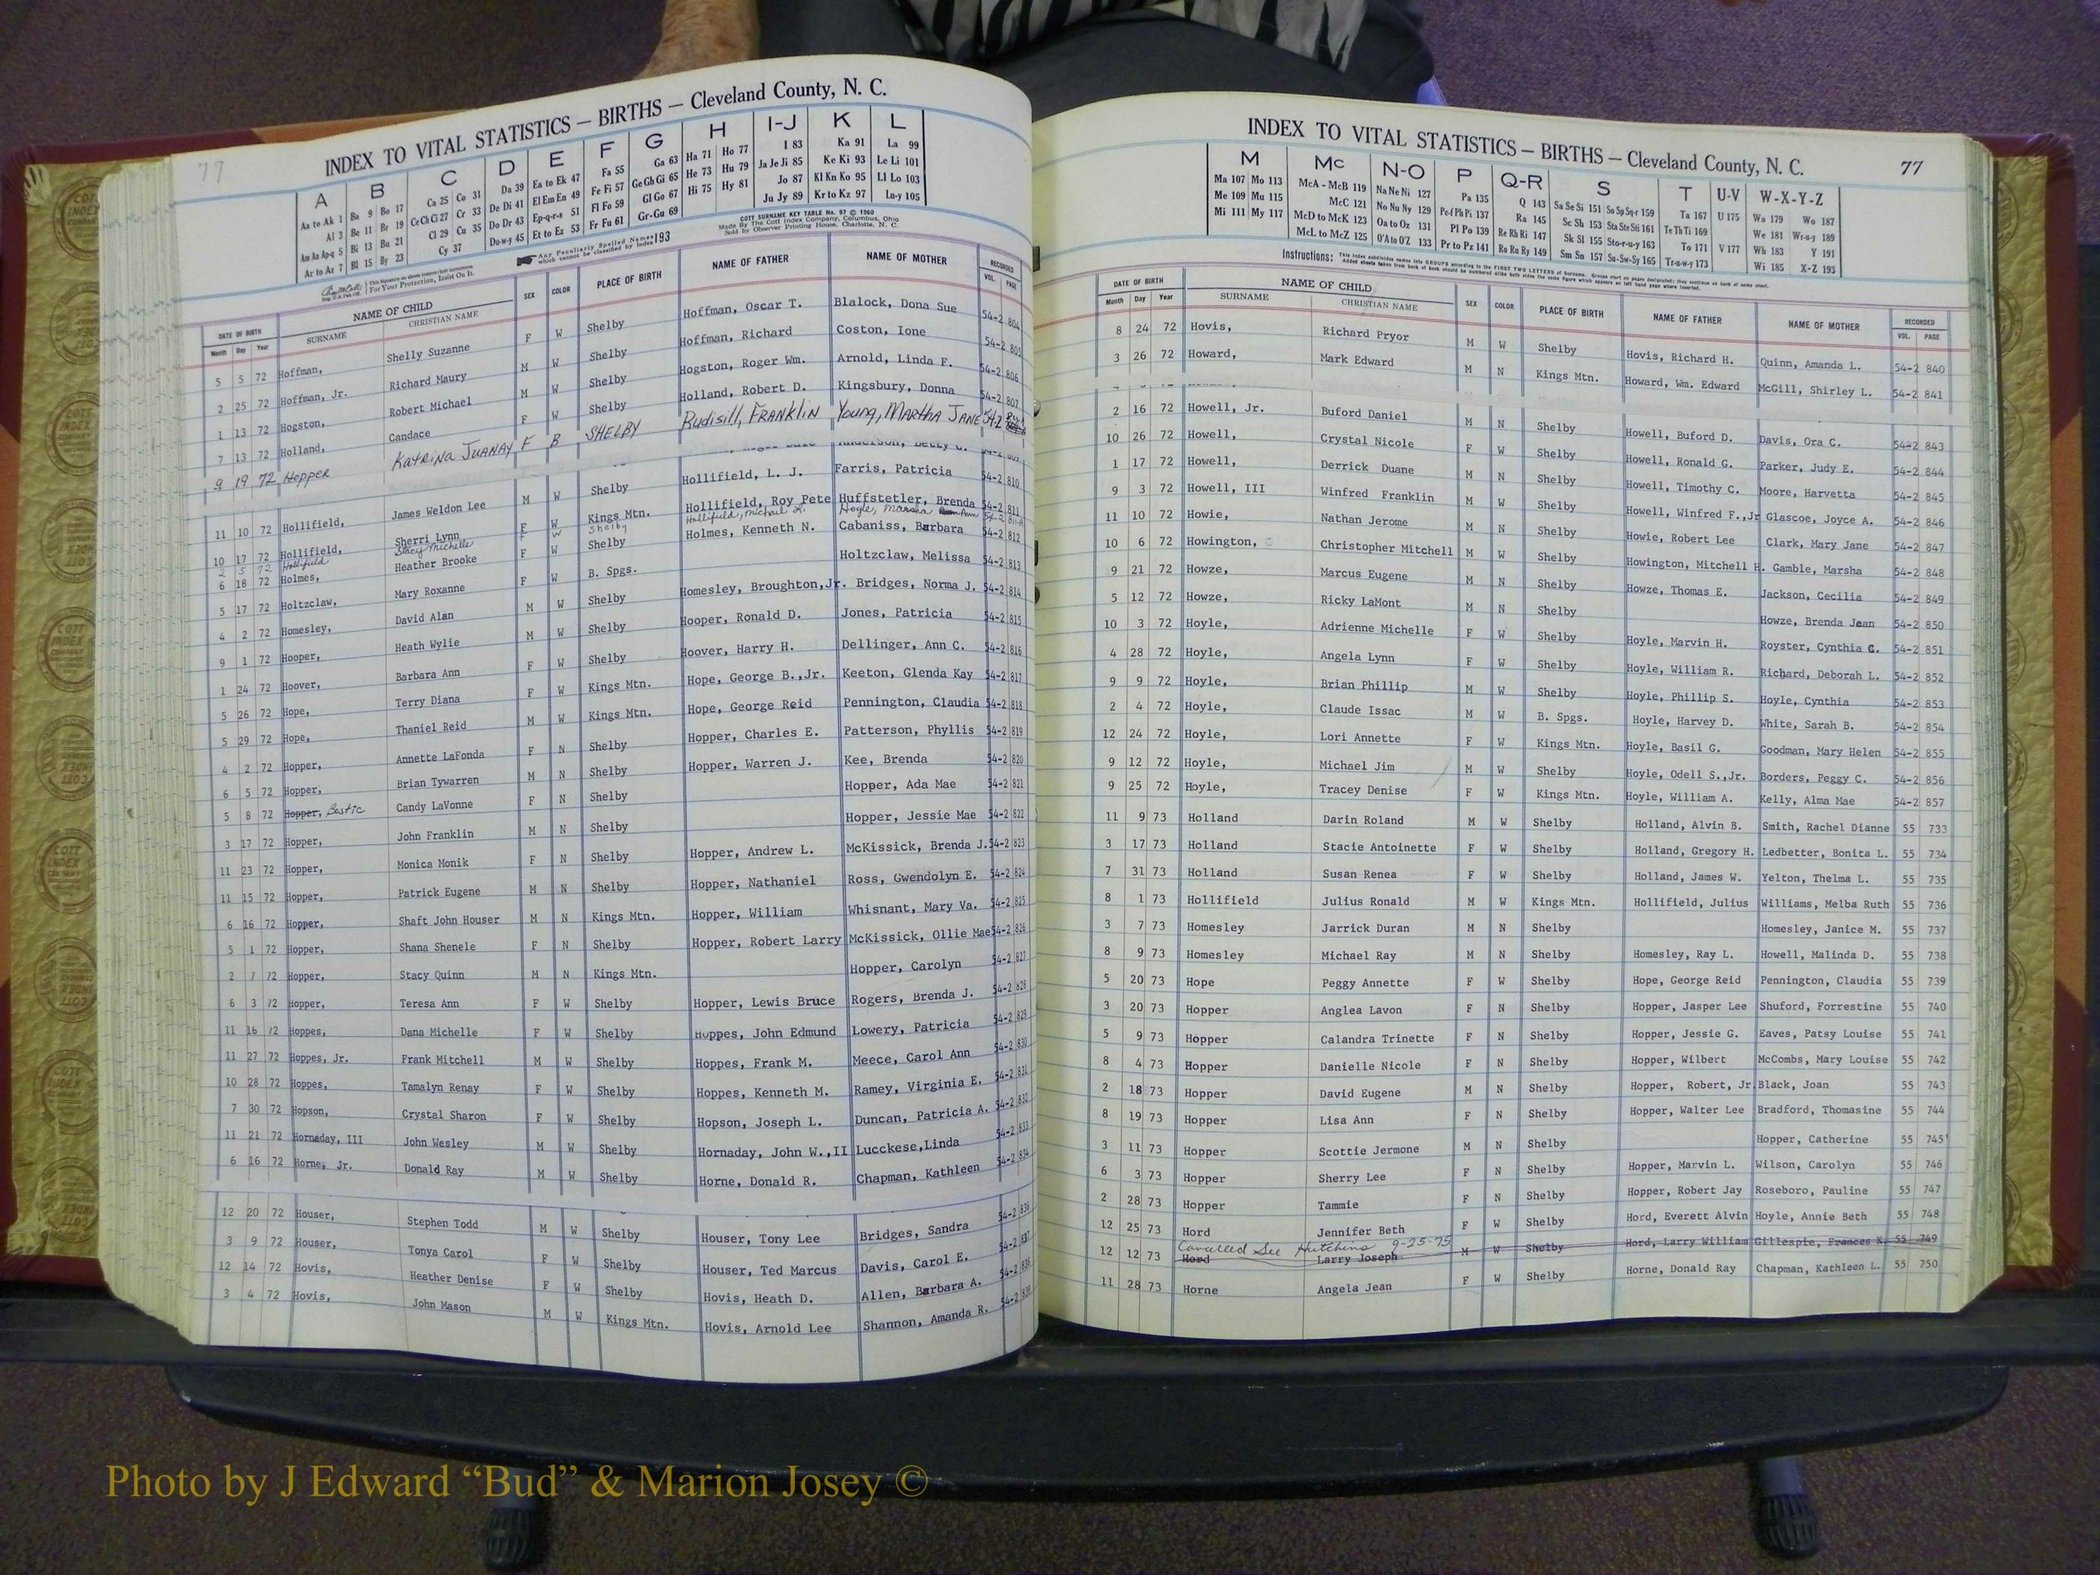 77
INDEX TO VITAL STATISTICS — BIRTHS — Cleveland County, N. C.
A B C D E F G H I-J K L
Aa to Ak 1 Ba 9 Bo 17 Ca 25 Co 31 Da 39 Ea to Ek 47 Fa 55 Ga 63 Ha 71 Ho 77 I 83 Ka 91 La 99
Al 3 Be 11 Br 19 Ce Ch Ci 27 Cr 33 De Di 41 El Em En 49 Fe Fi 57 Ge Gh Gi 65 He 73 Hu 79 Ja Je Ji 85 Ke Ki 93 Le Li 101
Am An Ap-q 5 Bi 13 Bu 21 Cl 29 Cu 35 Do Dr 43 Ep-q-r-s 51 Fl Fo 59 Gl Go 67 Hi 75 Hy 81 Jo 87 Kl Kn Ko 95 Ll Lo 103
Ar to Az 7 Bl 15 By 23 Cy 37 Du-w-y 45 Et to Ez 53 Fr Fu 61 Gr-Gu 69 Ju Jy 89 Kr to Kz 97 Lu-y 105
For Your Protection, Insist On It.
Any Peculiarly Spelled Names which cannot be classified by Index 193
COTT SURNAME KEY TABLE No. 97 © 1960
Made By The Cott Index Company, Columbus, Ohio
Sold by Observer Printing House, Charlotte, N. C.
DATE OF BIRTH NAME OF CHILD SEX COLOR PLACE OF BIRTH NAME OF FATHER NAME OF MOTHER RECORDED
Month Day Year SURNAME CHRISTIAN NAME VOL. PAGE
5 5 72 Hoffman, Shelly Suzanne F W Shelby Hoffman, Oscar T. Blalock, Dona Sue 54-2 804
2 25 72 Hoffman, Jr. Richard Maury M W Shelby Hoffman, Richard Coston, Ione 54-2 805
1 13 72 Hogston, Robert Michael M W Shelby Hogston, Roger Wm. Arnold, Linda F. 54-2 806
7 13 72 Holland, Candace F W Shelby Holland, Robert D. Kingsbury, Donna 54-2 807
9 19 72 Hopper Katrina Juanay F B SHELBY Rudisill, Franklin Young, Martha Jane 54-2
11 10 72 Hollifield, James Weldon Lee M W Shelby Hollifield, L. J. Farris, Patricia 54-2 810
10 17 72 Hollifield, Sherri Lynn F W Kings Mtn. Hollifield, Roy Pete Huffstetler, Brenda 54-2 811
2 5 72 Hollifield Stacy Michelle F W Shelby Hollifield, Michael Hoyle, Marsha Ann 54-2 811-A
6 18 72 Holmes, Heather Brooke F W Shelby Holmes, Kenneth N. Cabaniss, Barbara 54-2 812
5 17 72 Holtzclaw, Mary Roxanne F W B. Spgs. Holtzclaw, Melissa 54-2 813
4 2 72 Homesley, David Alan M W Shelby Homesley, Broughton,Jr. Bridges, Norma J. 54-2 814
9 1 72 Hooper, Heath Wylie M W Shelby Hooper, Ronald D. Jones, Patricia 54-2 815
1 24 72 Hoover, Barbara Ann F W Shelby Hoover, Harry H. Dellinger, Ann C. 54-2 816
5 26 72 Hope, Terry Diana F W Kings Mtn. Hope, George B.,Jr. Keeton, Glenda Kay 54-2 817
5 29 72 Hope, Thaniel Reid M W Kings Mtn. Hope, George Reid Pennington, Claudia 54-2 818
4 2 72 Hopper, Annette LaFonda F N Shelby Hopper, Charles E. Patterson, Phyllis 54-2 819
6 5 72 Hopper, Brian Tywarren M N Shelby Hopper, Warren J. Kee, Brenda 54-2 820
5 8 72 Hopper, Bostic Candy LaVonne F N Shelby Hopper, Ada Mae 54-2 821
3 17 72 Hopper, John Franklin M N Shelby Hopper, Jessie Mae 54-2 822
11 23 72 Hopper, Monica Monik F N Shelby Hopper, Andrew L. McKissick, Brenda J. 54-2 823
11 15 72 Hopper, Patrick Eugene M N Shelby Hopper, Nathaniel Ross, Gwendolyn E. 54-2 824
6 16 72 Hopper, Shaft John Houser M N Kings Mtn. Hopper, William Whisnant, Mary Va. 54-2 825
5 1 72 Hopper, Shana Shenele F N Shelby Hopper, Robert Larry McKissick, Ollie Mae 54-2 826
2 7 72 Hopper, Stacy Quinn M N Kings Mtn. Hopper, Carolyn 54-2 827
6 3 72 Hopper, Teresa Ann F W Shelby Hopper, Lewis Bruce Rogers, Brenda J. 54-2 828
11 16 72 Hoppes, Dana Michelle F W Shelby Hoppes, John Edmund Lowery, Patricia 54-2 829
11 27 72 Hoppes, Jr. Frank Mitchell M W Shelby Hoppes, Frank M. Meece, Carol Ann 54-2 830
10 28 72 Hoppes, Tamalyn Renay F W Shelby Hoppes, Kenneth M. Ramey, Virginia E. 54-2 831
7 30 72 Hopson, Crystal Sharon F W Shelby Hopson, Joseph L. Duncan, Patricia A. 54-2 832
11 21 72 Hornaday, III John Wesley M W Shelby Hornaday, John W.,II Lucckese,Linda 54-2 833
6 16 72 Horne, Jr. Donald Ray M W Shelby Horne, Donald R. Chapman, Kathleen 54-2 834
12 20 72 Houser, Stephen Todd M W Shelby Houser, Tony Lee Bridges, Sandra 54-2 836
3 9 72 Houser, Tonya Carol F W Shelby Houser, Ted Marcus Davis, Carol E. 54-2 837
12 14 72 Hovis, Heather Denise F W Shelby Hovis, Heath D. Allen, Barbara A. 54-2 838
3 4 72 Hovis, John Mason M W Kings Mtn. Hovis, Arnold Lee Shannon, Amanda R. 54-2 839
INDEX TO VITAL STATISTICS — BIRTHS — Cleveland County, N. C. 77
M Mc N-O P Q-R S T U-V W-X-Y-Z
Ma 107 Mo 113 McA - McB 119 Na Ne Ni 127 Pa 135 Q 143 Sa Se Si 151 So Sp Sq-r 159 Ta 167 U 175 Wa 179 Wo 187
Me 109 Mu 115 McC 121 No Nu Ny 129 Pe-f Ph Pi 137 Ra 145 Sc Sh 153 Sta Ste Sti 161 Te Th Ti 169 We 181 Wr-u-y 189
Mi 111 My 117 McD to McK 123 Oa to Oz 131 Pl Po 139 Re Rh Ri 147 Sk Sl 155 Sto-r-u-y 163 To 171 V 177 Wh 183 Y 191
McL to McZ 125 O'A to O'Z 133 Pr to Pz 141 Ro Ru Ry 149 Sm Sn 157 Su-Sw-Sy 165 Tr-u-w-y 173 Wi 185 X-Z 193
Instructions: This index subdivides names into GROUPS according to the FIRST TWO LETTERS of Surname.
DATE OF BIRTH NAME OF CHILD SEX COLOR PLACE OF BIRTH NAME OF FATHER NAME OF MOTHER RECORDED
Month Day Year SURNAME CHRISTIAN NAME VOL. PAGE
8 24 72 Hovis, Richard Pryor M W Shelby Hovis, Richard H. Quinn, Amanda L. 54-2 840
3 26 72 Howard, Mark Edward M N Kings Mtn. Howard, Wm. Edward McGill, Shirley L. 54-2 841
2 16 72 Howell, Jr. Buford Daniel M N Shelby Howell, Buford D. Davis, Ora C. 54-2 843
10 26 72 Howell, Crystal Nicole F W Shelby Howell, Ronald G. Parker, Judy E. 54-2 844
1 17 72 Howell, Derrick Duane M N Shelby Howell, Timothy C. Moore, Harvetta 54-2 845
9 3 72 Howell, III Winfred Franklin M W Shelby Howell, Winfred F.,Jr Glascoe, Joyce A. 54-2 846
11 10 72 Howie, Nathan Jerome M N Shelby Howie, Robert Lee Clark, Mary Jane 54-2 847
10 6 72 Howington, Christopher Mitchell M W Shelby Howington, Mitchell H. Gamble, Marsha 54-2 848
9 21 72 Howze, Marcus Eugene M N Shelby Howze, Thomas E. Jackson, Cecilia 54-2 849
5 12 72 Howze, Ricky LaMont M N Shelby Howze, Brenda Jean 54-2 850
10 3 72 Hoyle, Adrienne Michelle F W Shelby Hoyle, Marvin H. Royster, Cynthia C. 54-2 851
4 28 72 Hoyle, Angela Lynn F W Shelby Hoyle, William R. Richard, Deborah L. 54-2 852
9 9 72 Hoyle, Brian Phillip M W Shelby Hoyle, Phillip S. Hoyle, Cynthia 54-2 853
2 4 72 Hoyle, Claude Issac M W B. Spgs. Hoyle, Harvey D. White, Sarah B. 54-2 854
12 24 72 Hoyle, Lori Annette F W Kings Mtn. Hoyle, Basil G. Goodman, Mary Helen 54-2 855
9 12 72 Hoyle, Michael Jim M W Shelby Hoyle, Odell S.,Jr. Borders, Peggy C. 54-2 856
9 25 72 Hoyle, Tracey Denise F W Kings Mtn. Hoyle, William A. Kelly, Alma Mae 54-2 857
11 9 73 Holland Darin Roland M W Shelby Holland, Alvin B. Smith, Rachel Dianne 55 733
3 17 73 Holland Stacie Antoinette F W Shelby Holland, Gregory H. Ledbetter, Bonita L. 55 734
7 31 73 Holland Susan Renea F W Shelby Holland, James W. Yelton, Thelma L. 55 735
8 1 73 Hollifield Julius Ronald M W Kings Mtn. Hollifield, Julius Williams, Melba Ruth 55 736
3 7 73 Homesley Jarrick Duran M N Shelby Homesley, Janice M. 55 737
8 9 73 Homesley Michael Ray M N Shelby Homesley, Ray L. Howell, Malinda D. 55 738
5 20 73 Hope Peggy Annette F W Shelby Hope, George Reid Pennington, Claudia 55 739
3 20 73 Hopper Anglea Lavon F N Shelby Hopper, Jasper Lee Shuford, Forrestine 55 740
5 9 73 Hopper Calandra Trinette F N Shelby Hopper, Jessie G. Eaves, Patsy Louise 55 741
8 4 73 Hopper Danielle Nicole F N Shelby Hopper, Wilbert McCombs, Mary Louise 55 742
2 18 73 Hopper David Eugene M N Shelby Hopper, Robert, Jr. Black, Joan 55 743
8 19 73 Hopper Lisa Ann F N Shelby Hopper, Walter Lee Bradford, Thomasine 55 744
3 11 73 Hopper Scottie Jermone M N Shelby Hopper, Catherine 55 745
6 3 73 Hopper Sherry Lee F N Shelby Hopper, Marvin L. Wilson, Carolyn 55 746
2 28 73 Hopper Tammie F N Shelby Hopper, Robert Jay Roseboro, Pauline 55 747
12 25 73 Hord Jennifer Beth F W Shelby Hord, Everett Alvin Hoyle, Annie Beth 55 748
Cancelled See Hutchins 9-25-75
12 12 73 Hord Larry Joseph M W Shelby Hord, Larry William Gillespie, Frances K. 55 749
11 28 73 Horne Angela Jean F W Shelby Horne, Donald Ray Chapman, Kathleen L. 55 750
Photo by J Edward “Bud” & Marion Josey ©